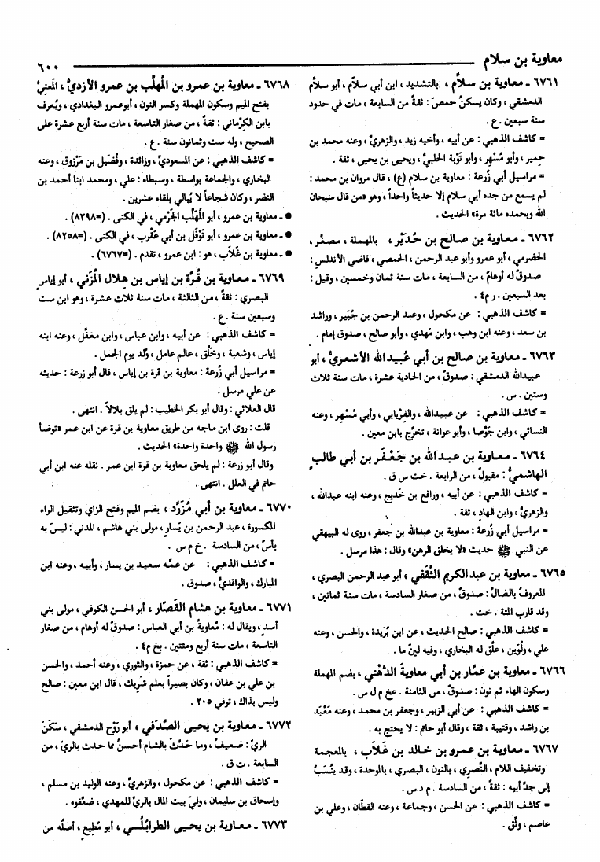 معاوية بن سلام
٦٠٠
٦٧٦١ - معاوية بن سلّام، بالتشديد، ابن أبي سلّام، أبو سلّام
الدمشقي، وكان يسكنُ حمصَ: ثقةٌ من السابعة، مات في حدود
سنة سبعين. ع.
= كاشف الذهبي: عن أبيه، وأخيه زيد، والزهريِّ، وعنه محمد بن
حِمير، وأبو مُسْهِر، وأبو تَوْبة الحلبيُّ، ويحيى بن يحيى، ثقة.
= مراسيل أبي زُرعة: معاوية بن سلام (ع)، قال مروان بن محمد:
لم يسمع من جده أبي سلام إلا حديثاً واحداً، وهو «من قال سبحان
الله وبحمده مائة مرة» الحديث.
٦٧٦٢ - معاوية بن صالح بن حُدَيْر، بالمهملة، مصغّر،
الحضرمي، أبو عمرو وأبو عبد الرحمن، الحمصي، قاضي الأندلس:
صدوقٌ له أوهامٌ، من السابعة، مات سنة ثمان وخمسين، وقيل:
بعد السبعين. ر م ٤.
= كاشف الذهبي: عن مكحول، وعبد الرحمن بن جُبَير، وراشد
بن سعد، وعنه ابن وهب، وابن مَهْدي، وأبو صالح، صدوق إمام.
٦٧٦٣ - معاوية بن صالح بن أبي عُبيد الله الأشعريُّ، أبو
عبيدالله الدمشقي: صدوقٌ، من الحادية عشرة، مات سنة ثلاث
وستين. س.
= كاشف الذهبي: عن عبيدالله، والفِرْيابي، وأبي مُسْهر، وعنه
النسائي، وابن جَوْصا، وأبو عوانة، تخرّج بابن معين.
٦٧٦٤ - معاوية بن عبدالله بن جعفر بن أبي طالب
الهاشميُّ: مقبولٌ، من الرابعة. خت س ق.
= كاشف الذهبي: عن أبيه، ورافع بن خَديج، وعنه ابنه عبدالله،
والزهريُّ، وابن الهاد، ثقة.
= مراسيل أبي زُرعة: معاوية بن عبدالله بن جعفر، روى له البيهقي
عن النبي ﷺ حديث «لا يغلق الرهن» وقال: هذا مرسل.
٦٧٦٥ - معاوية بن عبدالكريم الثقفي، أبو عبد الرحمن البصري،
المعروف بالضالِّ: صدوقٌ، من صغار السادسة، مات سنة ثمانين،
وقد قارب المئة. خت.
= كاشف الذهبي: صالح الحديث، عن ابن بُرَيدة، والحسن، وعنه
علي، ولُوَيْن، علّق له البخاري، وفيه لينٌ ما.
٦٧٦٦ - معاوية بن عمّار بن أبي معاوية الدُّهْني، بضم المهملة
وسكون الهاء ثم نون: صدوقٌ، من الثامنة. عخ م ل س.
= كاشف الذهبي: عن أبي الزبير، وجعفر بن محمد، وعنه مَعْبَد
بن راشد، وقتيبة، ثقة، وقال أبو حاتم: لا يحتج به.
٦٧٦٧ - معاوية بن عمرو بن خالد بن غَلَاب، بالمعجمة
وتخفيف اللام، النَّصْري، بالنون، البصري، بالموحدة، وقد يُنسَبُ
إلى جدِّ أبيه: ثقةٌ، من السادسة. م د س.
= كاشف الذهبي: عن الحسن، وجماعة، وعنه القطان، وعلي بن
عاصم، وثّق.
٦٧٦٨ - معاوية بن عمرو بن المهلّب بن عمرو الأزديُّ، المَعْنيُّ
بفتح الميم وسكون المهملة وكسر النون، أبوعمرو البغدادي، ويُعرف
بابن الكِرْماني: ثقةٌ، من صغار التاسعة، مات سنة أربع عشرة على
الصحيح، وله ست وثمانون سنة. ع.
= كاشف الذهبي: عن المسعوديِّ، وزائدة، وفُضيل بن مَرْزوق، وعنه
البخاري، والجماعة بواسطة، وسبطاه: علي، ومحمد ابنا أحمد بن
النضر، وكان شجاعاً لا يُبالي بلقاء عشرين.
● - معاوية بن عمرو، أبو المُهَلّب الجَرْمي، في الكنى. (=٨٣٩٨).
● - معاوية بن عمرو، أبو نَوْفَل بن أبي عَقْرب، في الكنى. (=٨٤٥٨).
● - معاوية بن غَلَاب، هو: ابن عمرو، تقدم. (=٦٧٦٧).
٦٧٦٩ - معاوية بن قُرّة بن إياس بن هِلال المُزَني، أبو إياس
البصري: ثقةٌ، من الثالثة، مات سنة ثلاث عشرة، وهو ابن ست
وسبعين سنة. ع.
= كاشف الذهبي: عن أبيه، وابن عباس، وابن مغفّل، وعنه ابنه
إياس، وشعبة، وخَلْقٌ، عالم عامل، وُلد يوم الجمل.
= مراسيل أبي زُرعة: معاوية بن قرة بن إياس، قال أبو زرعة: حديثه
عن علي مرسل.
قال العلائي: وقال أبو بكر الخطيب: لم يلق بلالاً. انتهى.
قلت: روى ابن ماجه من طريق معاوية بن قرة عن ابن عمر «توضأ
رسول الله ﷺ واحدة واحدة» الحديث.
وقال أبو زرعة: لم يلحق معاوية بن قرة ابن عمر. نقله عنه ابن أبي
حاتم في العلل. انتهى.
٦٧٧٠ - معاوية بن أبي مُزَرِّد، بضم الميم وفتح الزاي وتثقيل الراء
المكسورة، عبد الرحمن بن يسار، مولى بني هاشم، المدني: ليس به
بأسٌ، من السادسة. خ م س.
= كاشف الذهبي: عن عمّه سعيد بن يسار، وأبيه، وعنه ابن
المبارك، والواقديُّ، صدوق.
٦٧٧١ - معاوية بن هشام القصّار، أبو الحسن الكوفي، مولى بني
أسد، ويقال له: مُعاويةُ بن أبي العباس: صدوقٌ له أوهام، من صغار
التاسعة، مات سنة أربع ومئتين. بخ م ٤.
= كاشف الذهبي: ثقة، عن حمزة، والثوري، وعنه أحمد، والحسن
بن علي بن عفان، وكان بصيراً بعلم شَريك، قال ابن معين: صالح
وليس بذاك، توفي ٢٠٥.
٦٧٧٢ - معاوية بن يحيى الصَّدَفي، أبو رَوْح الدمشقي، سكَنَ
الريَّ: ضعيفٌ، وما حدَّث بالشام أحسنُ مما حدث بالريِّ، من
السابعة. ت ق.
= كاشف الذهبي: عن مكحول، والزهري، وعنه الوليد بن مسلم،
وإسحاق بن سليمان، ولي بيت المال بالريِّ للمهدي، ضعّفوه.
٦٧٧٣ - معاوية بن يحيى الطرابلُسي، أبو مُطيع، أصله من